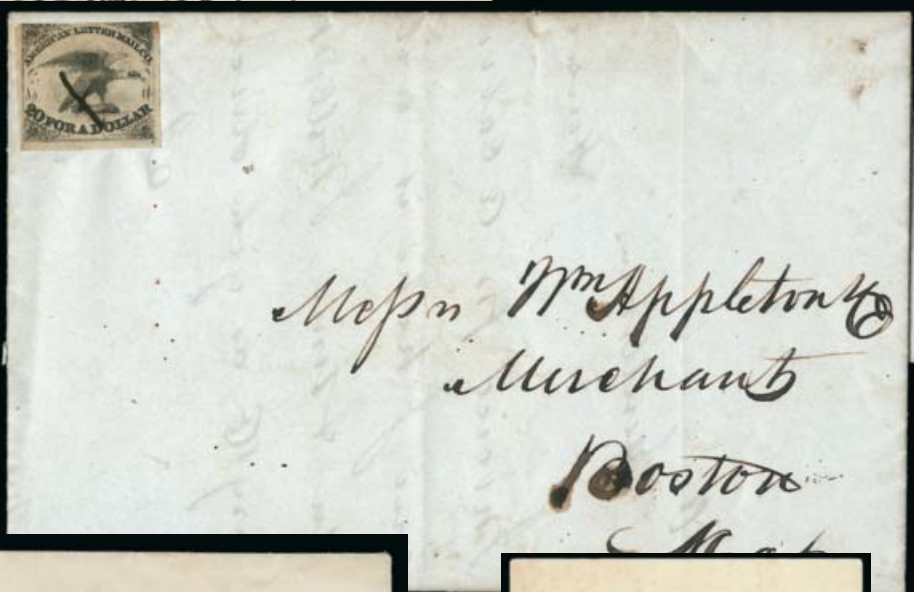 AMERICAN LETTER MAIL CO.
20 FOR A DOLLAR
Messrs Wm Appleton & Co
Merchants
Boston